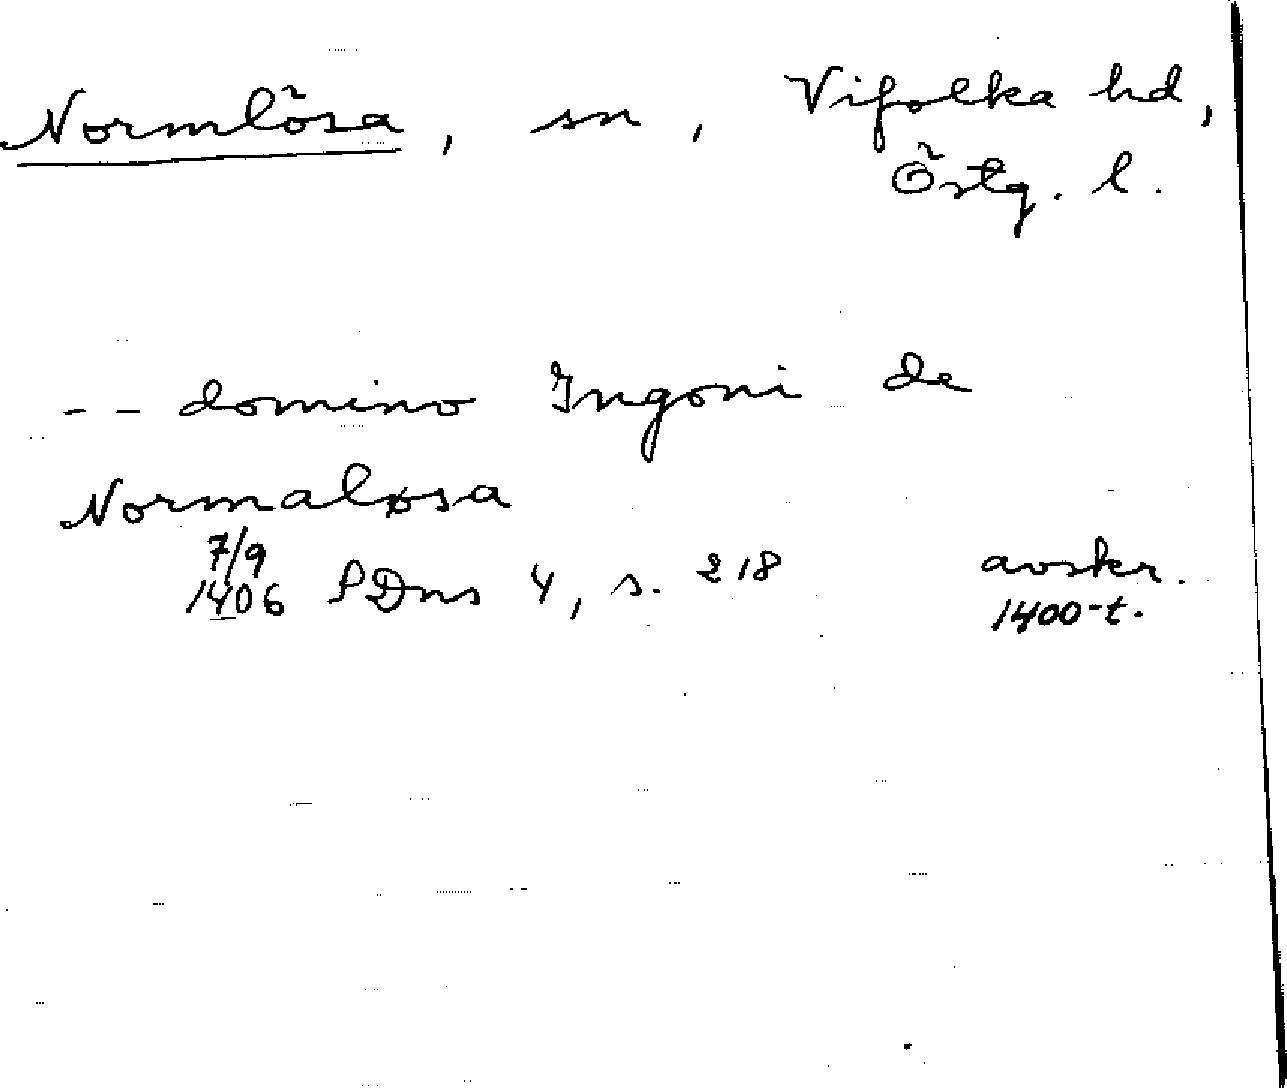 Normlösa, sn, Vifolka hd,
Östg. l.
-- domino Ingoni de
Normaløsa
7/9
1406 SDns 4, s. 218 avskr.
1400-t.